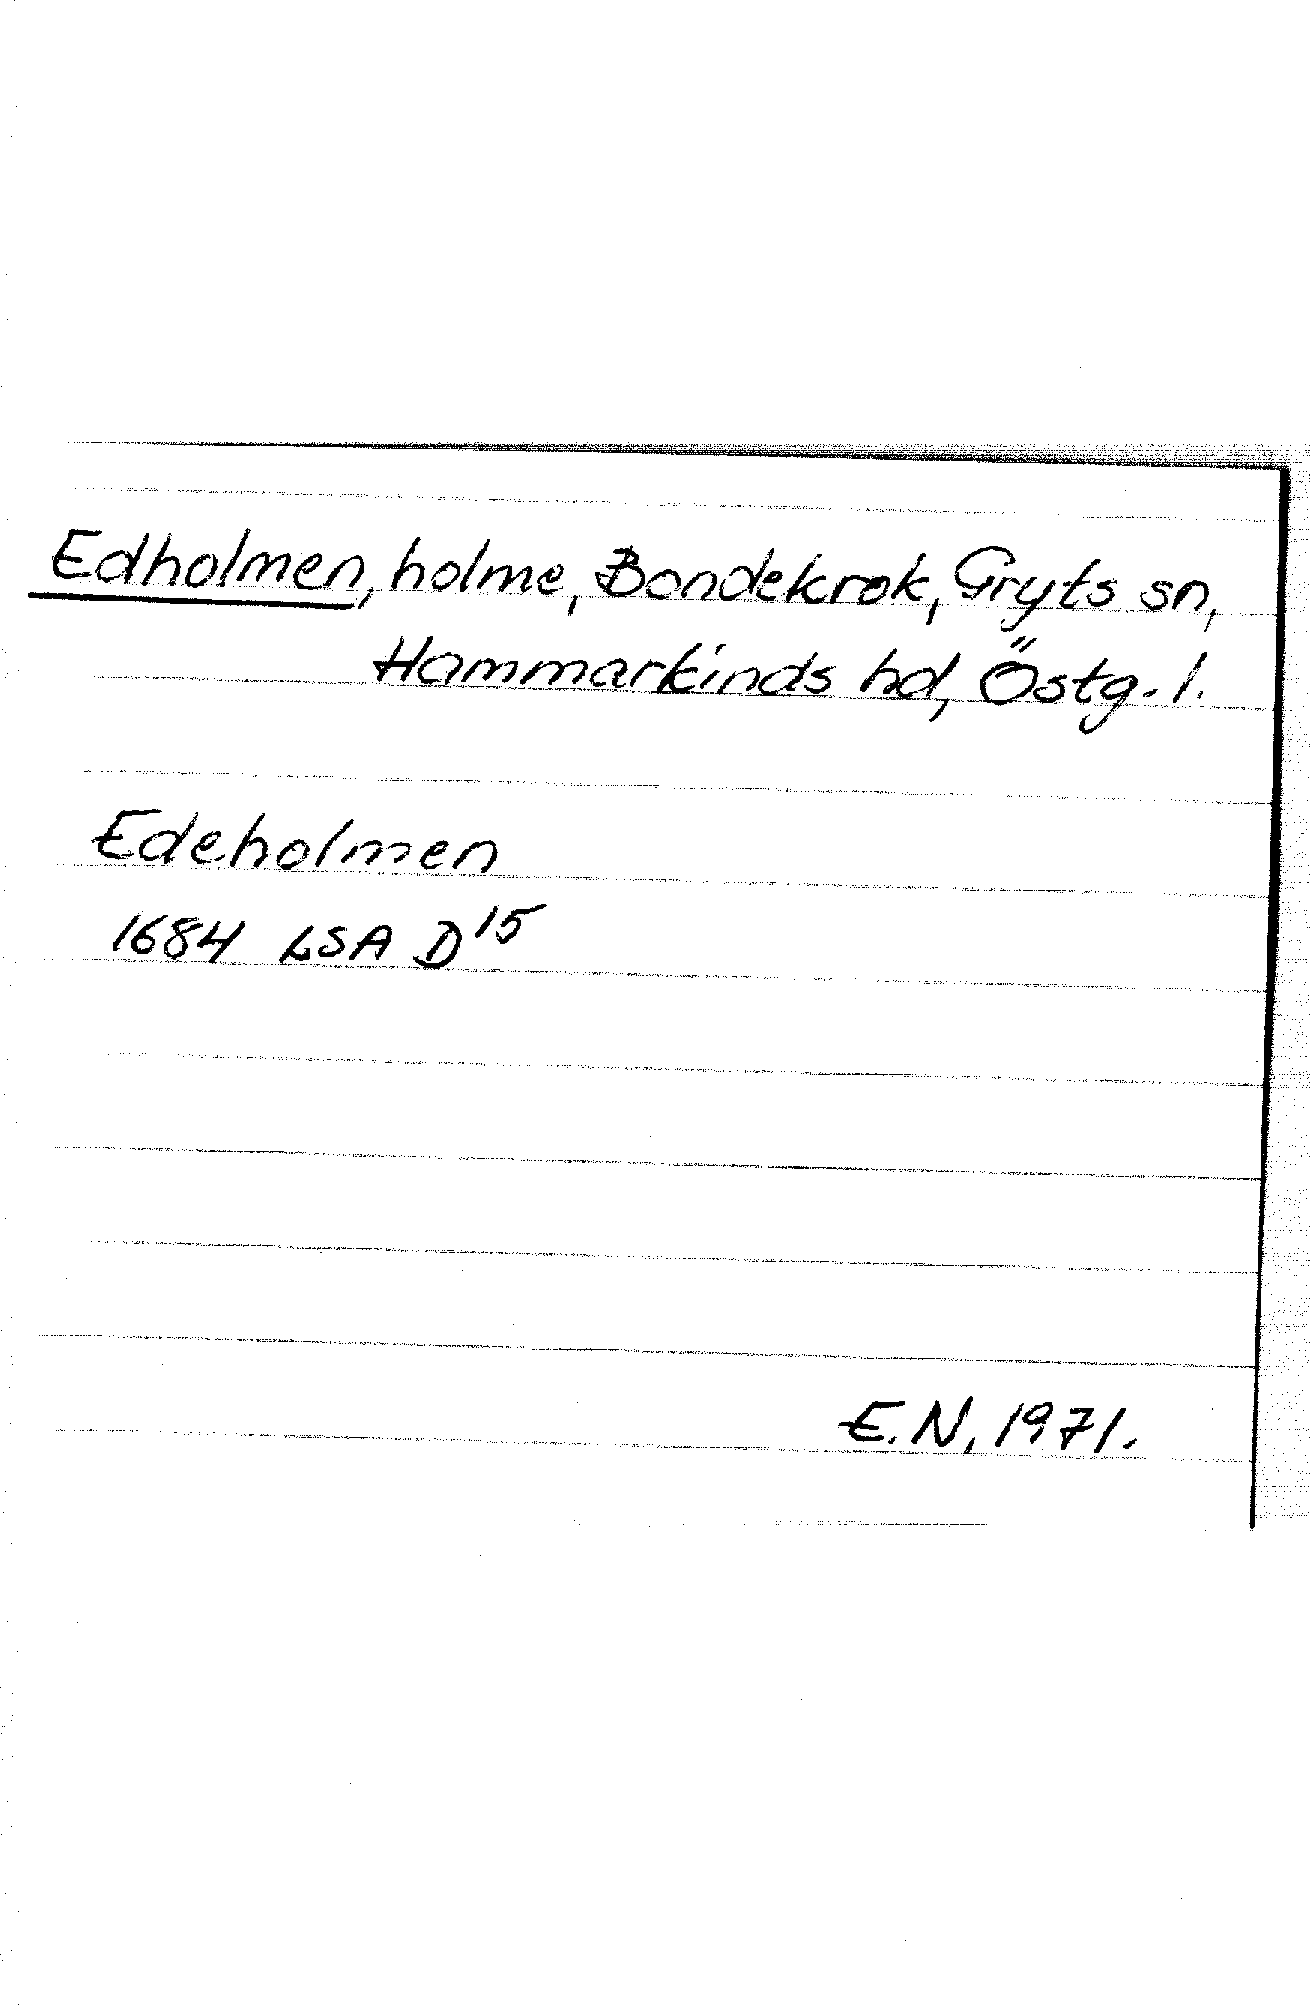 Edholmen, holme, Bondekrok, Gryts sn,
Hammarkinds hd, Östg. l.
Edeholmen
1684 LSA D15
E.N. 1971.